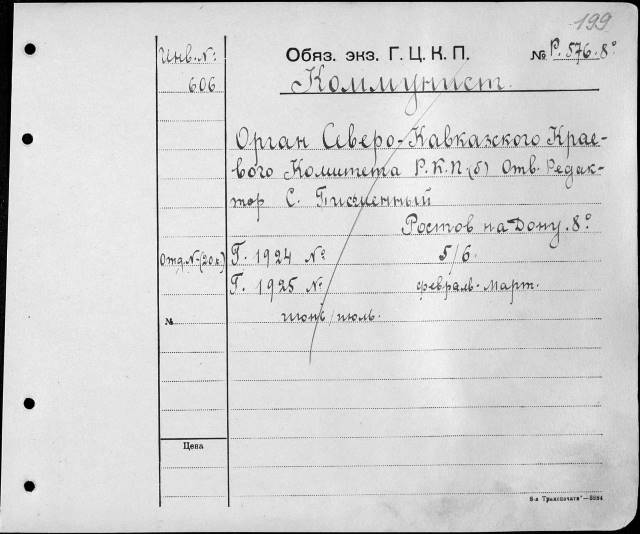 199
Инв. №:
606
Обяз. экз. Г. Ц. К. П.
№ Р. 576. 8º
Коммунист.
Орган Северо-Кавказского Крае-
вого Комитета Р.К.П.(б) Отв. Редак-
тор С. Письменный
Ростов на Дону. 8º
Отд. №-(20а)
Г. 1924 № 5/6.
Г. 1925 № февраль-март.
№
июнь/июль.
Цена